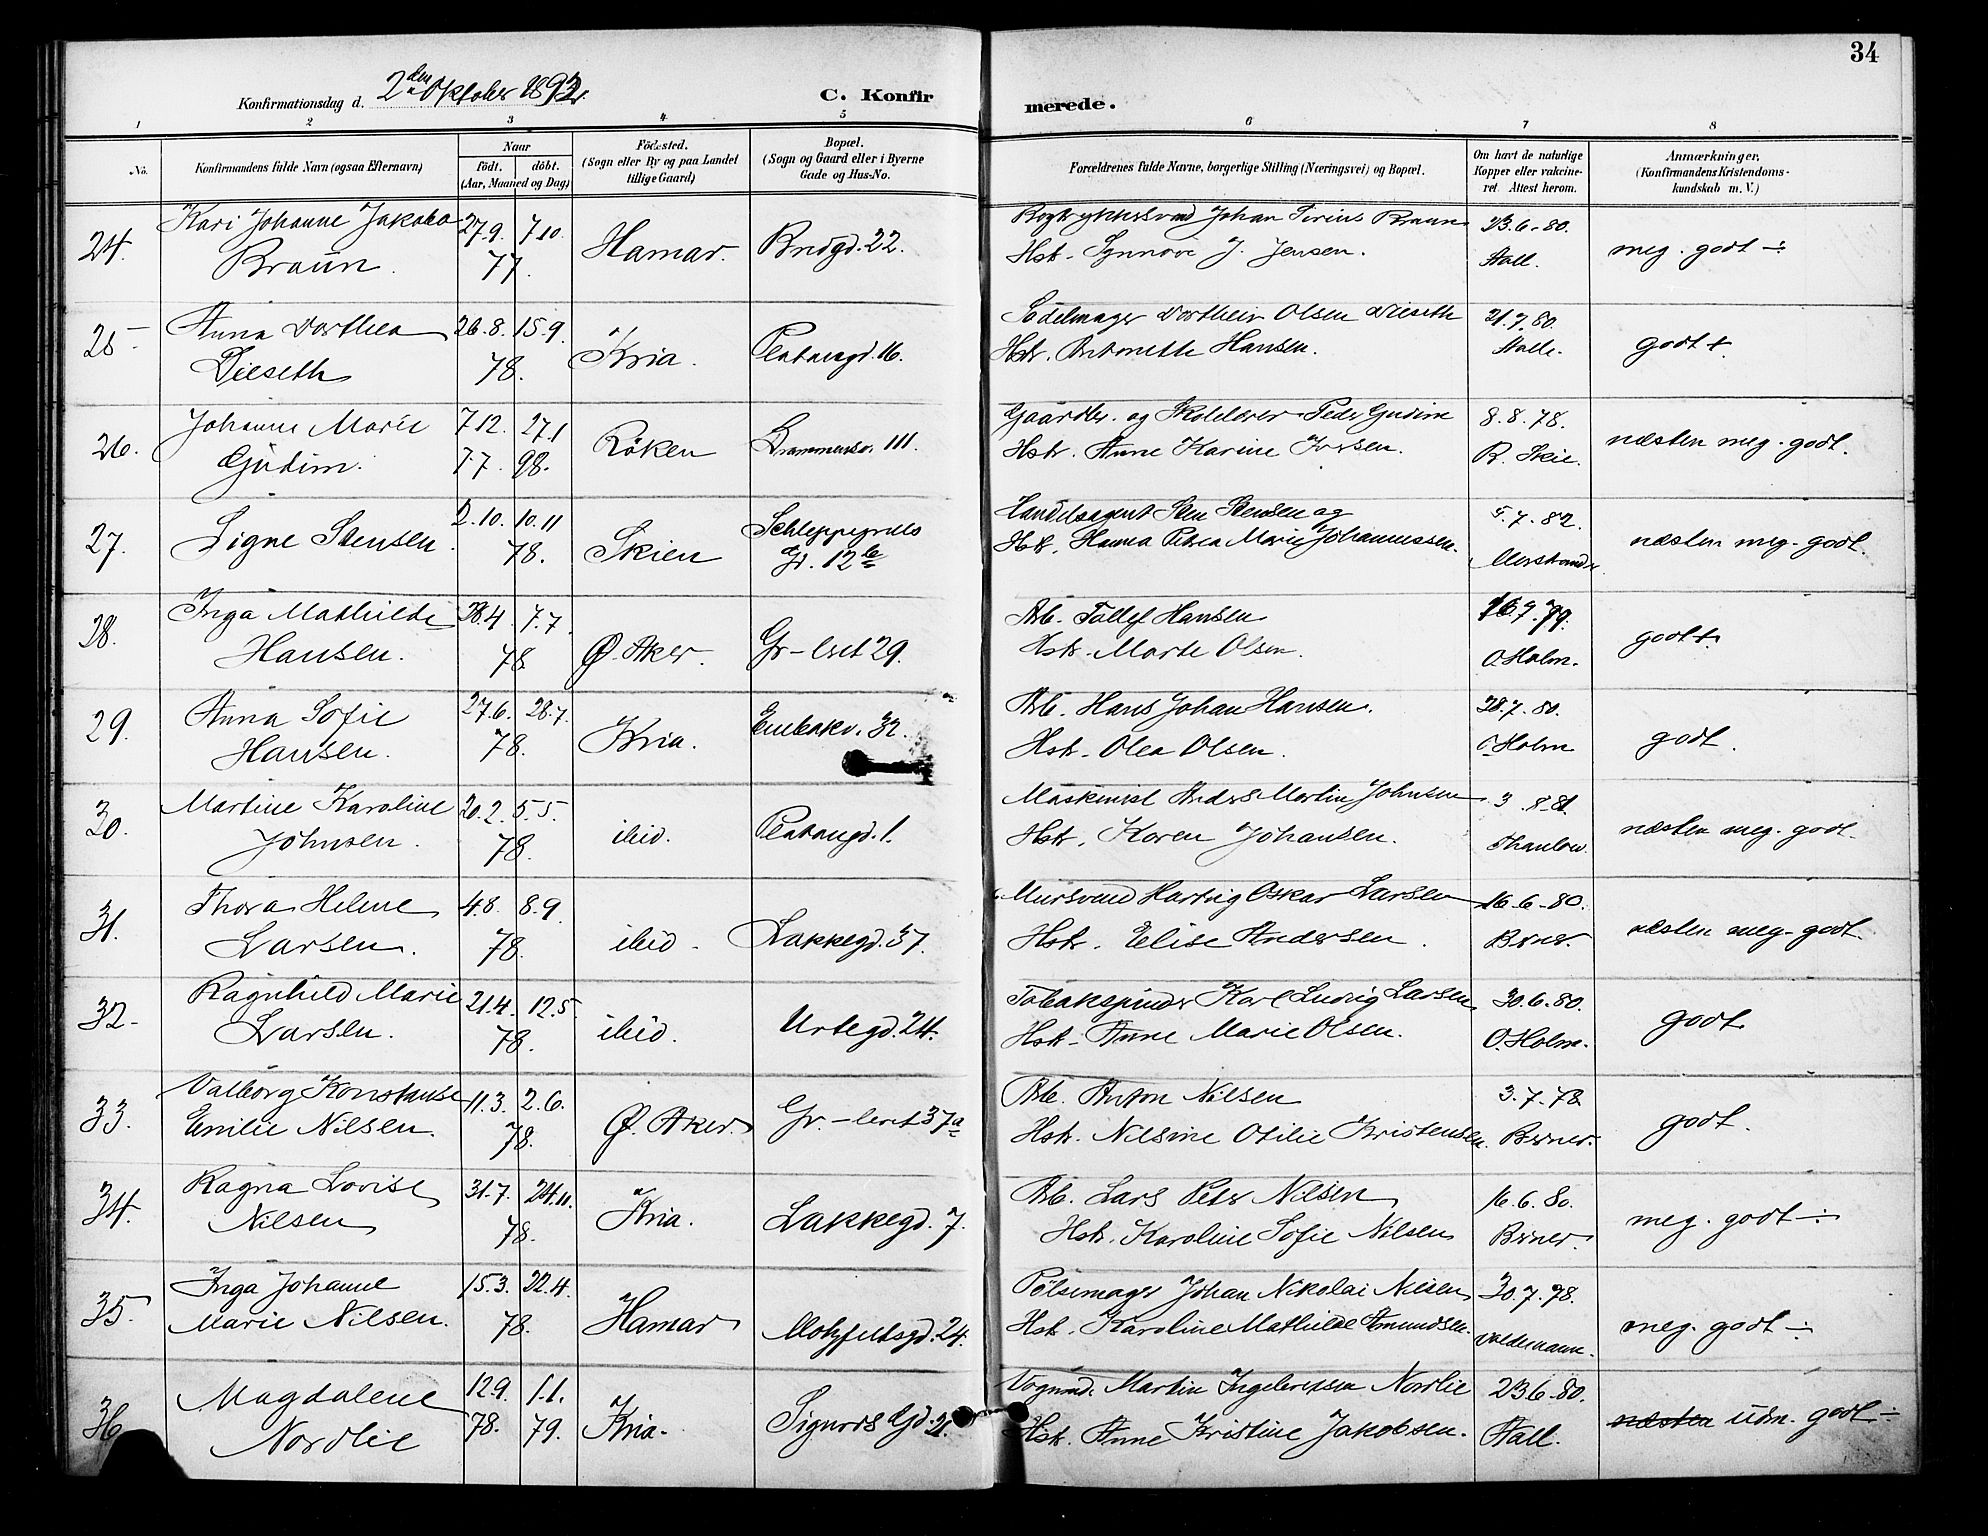 34
Konfirmationsdag d. 2den Oktober 1892.
C. Konfirmerede.
1 2 3 4 5 6 7 8
No. Konfirmandens fulde Navn (ogsaa Efternavn) Naar født. døbt. (Aar, Maaned og Dag) Födested. (Sogn eller By og paa Landet tillige Gaard) Bopæl. (Sogn og Gaard eller i Byerne Gade og Hus-No. Forældrenes fulde Navne, borgerlige Stilling (Næringsvei) og Bopæl. Om havt de naturlige Kopper eller vakcineret. Attest herom. Anmærkninger. (Konfirmandens Kristendomskundskab m. V.)
24. Kari Johanne Jakoba 27.9. 7.10. Hamar. Brndgd. 22. Bogtrykkersvend Johan Braun 23.6.80. meg. godt ÷
Braun. 77. Hstr. Synnöve J. Jensen. Stall.
25 Anna Dorthea 26.8. 15.9. Kria. Platougd. 16. Sadelmager Olsen Dieseth 21.7.80. godt +
Dieseth 78. Hstr. Antonette Hansen. Stalle.
26. Johanne Marie 7.12. 27.1 Röken Drammensv. 111. Gaardbr. og Skolelærer Peder Gudim 8.8.78. næsten meg. godt.
Gudim. 77. 98. Hstr. Anne Karine Iversen. R. Skie.
27. Signe Stensen. 2.10. 10.11 78. Skien Schleppegrells Gd. 12b Handelsagent Sten Stensen og 5.7.82. næsten meg. godt.
Hstr. Hanna Petrea Marie Johannessen.
28. Inga Mathilde 28.4. 7.7. Ø. Aker. Gr-leret 29. Arb. Tollef Hansen 16.7.79. godt +
Hansen. 78 Hstr. Marte Olsen. O. Holm.
29. Anna Sofie 27.6. 28.7. Kria. Enebakv. 32. Arb. Hans Johan Hansen. 28.7.80. godt.
Hansen. 78. Hstr. Olea Olsen. O. Holm
30. Martine Karoline 20.2. 5.5. ibid. Platougd. 1. Maskinist Anders Martin Johnsen 3.8.81 næsten meg. godt.
Johnsen. 78. Hstr. Karen Johansen. Thaulow.
31. Thora Helene 4.8. 8.9. ibid. Lakkegd. 37. Mursvend Hartvig Oskar Larsen 16.6.80. næsten meg. godt.
Larsen. 78. Hstr. Elise Andersen.
32. Ragnhild Marie 21.4. 12.5. ibid. Urtegd. 24. Tobakspinder Karl Ludvig Larsen 30.6.80. godt
Larsen. 78. Hstr. Anne Marie Olsen. O. Holm.
33. Valborg Konstanse 11.3. 2.6. Ø. Aker. Gr.-leret 37a Arb. Anton Nilsen 3.7.78 godt.
Emilie Nilsen. 78. Hstr. Nilsine Otilie Kristensen.
34. Ragna Lovise 31.7. 24.11. Kria. Lakkegd. 7. Arb. Lars Peter Nilsen 16.6.80. meg. godt ÷
Nilsen 78. Hstr. Karoline Sofie Nilsen
35. Inga Johanne 15.3. 22.4. Hamar Motzfeltsgd. 24. Pölsemager Johan Nikolai Nilsen 30.7.78. meg. godt ÷
Marie Nilsen. 78. Hstr. Karoline Mathilde Amundsen. Voldemann.
36 Magdalene 12.9. 1.1. Kria. Sigurds Gd. 21. Vognmd. Martin Nordlie 23.6.80. næsten udm. godt ÷
Nordlie 78. 79. Hstr. Anne Kristine Jakobsen. Stall.